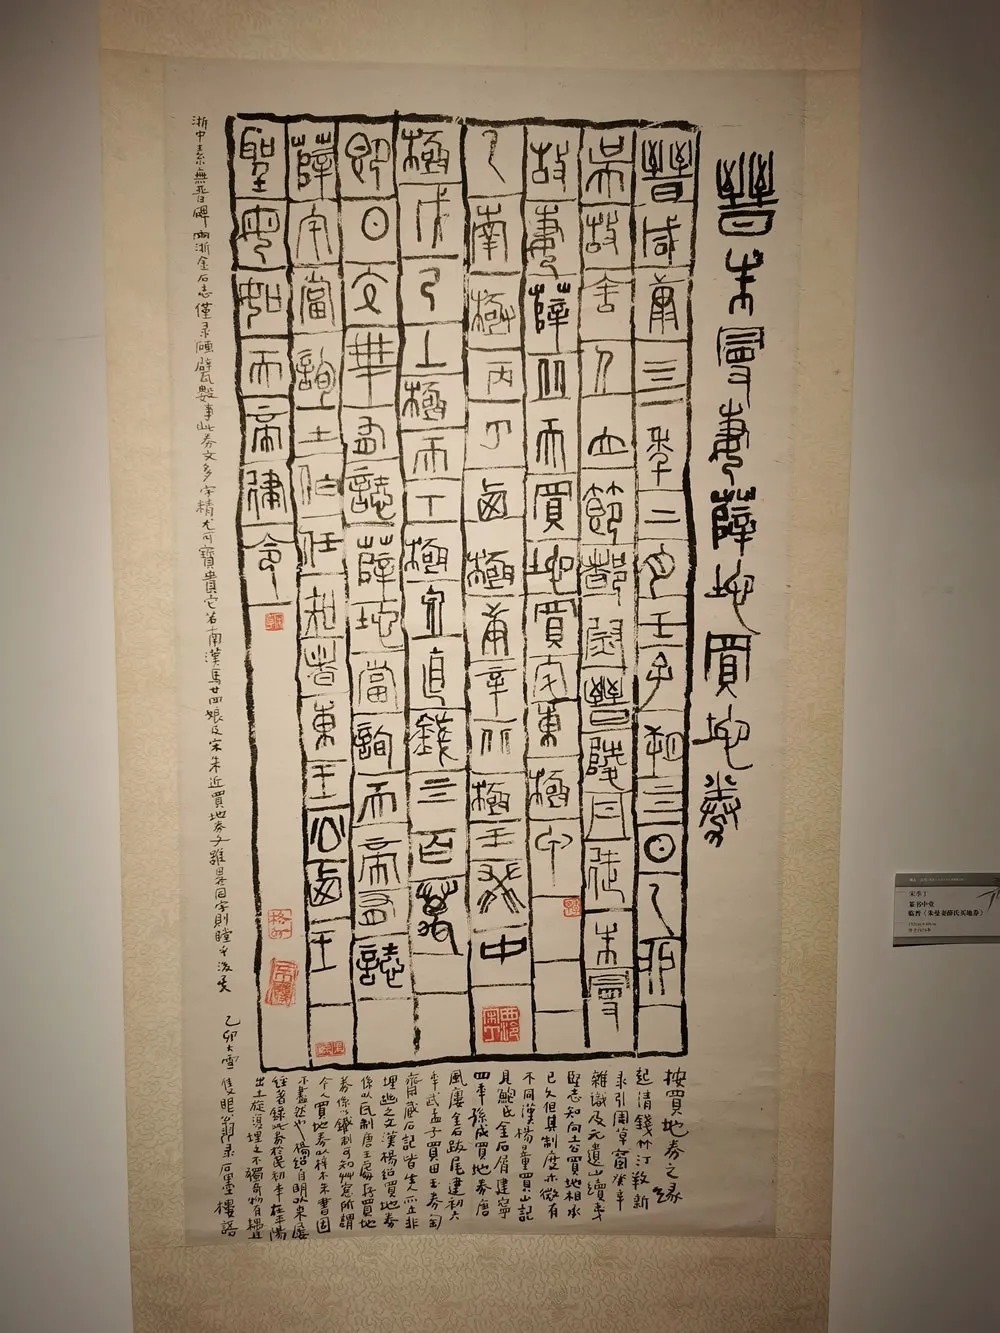 晉朱曼妻薛地買地券
晉咸康亖年二月壬子朔亖日乙卯
吳故舍人立節都尉晉陵丹徒朱曼
故妻薛從天買地從地買宅東極甲
乙南極丙丁西極庚辛北極壬癸中
極戊己上極天下極泉直錢二百萬
即日交畢有誌薛地當詢天帝有誌
薛宅當詢土伯任知者東王公西王
聖母如天帝律令
浙中素無晉碑兩浙金石志僅录磚甓數事此券文多字精尤可寶貴它若南漢馬廿四娘及宋朱近買地券文雖畧同字則瞠乎後矣 乙卯大雪隻眼翁录石墨樓語
按買地券之緣
起清錢竹汀養新
录引周草窗癸辛
雜識及元遺山續夷
堅志知向立買地相承
已久但其制度亦微有
不同漢楊量買山記
見鮑氏金石屑建寧
四年孫成買地券唐
風廔金石跋尾建初六
年武孟子買田玉券匋
齋臧石記皆生人所立非
埋幽之文漢楊紹買地券
係以瓦制唐王處存買地
券係以鐵制可知艸窗所謂
今人買地券以梓木朱書固
不盡然也楊紹自明以來屡
經著錄此券於民初年在平陽
出土旋復埋土不獨奇物有
篆书中堂
临晋《朱曼妻薛氏买地券》